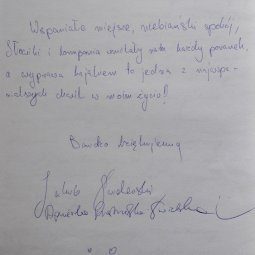 Wspaniałe miejsce, niebiański spokój,
Słoniki i kompania umilały nam każdy poranek,
a wyprawa kajakiem to jedna z najwspa-
nialszych chwil w moim życiu!
Bardzo dziękujemy
Jakub
Agnieszka